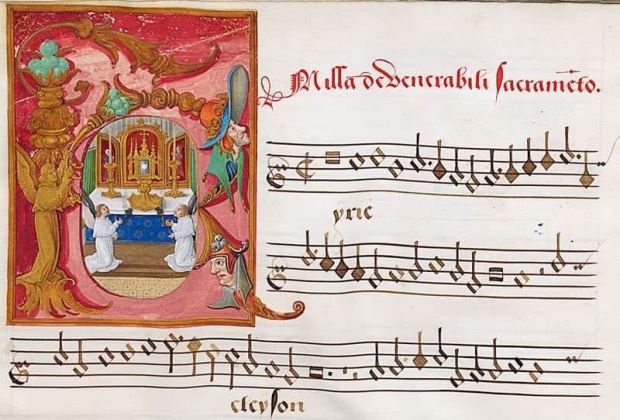 Missa de Venerabili sacrame͂to.
yrie
eleyson